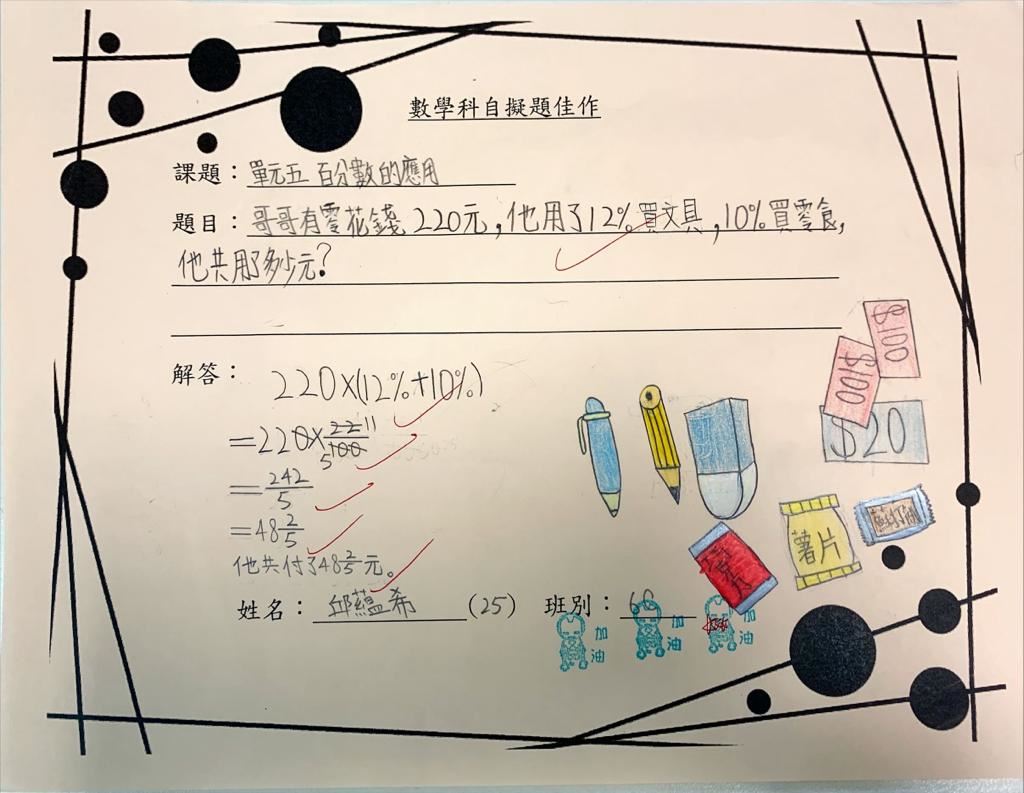 數學科自擬題佳作
課題：單元五 百分數的應用
題目：哥哥有零花錢 220元，他用了12%買文具，10%買零食，
他共用了多少元？
解答：
220×(12%+10%)
=220×22/100 11 5
=242/5
=48 2/5
他共付了48 2/5元。
姓名：邱蘊希 (25) 班別：
$100
$100
$20
薯片
加油
加油
加油